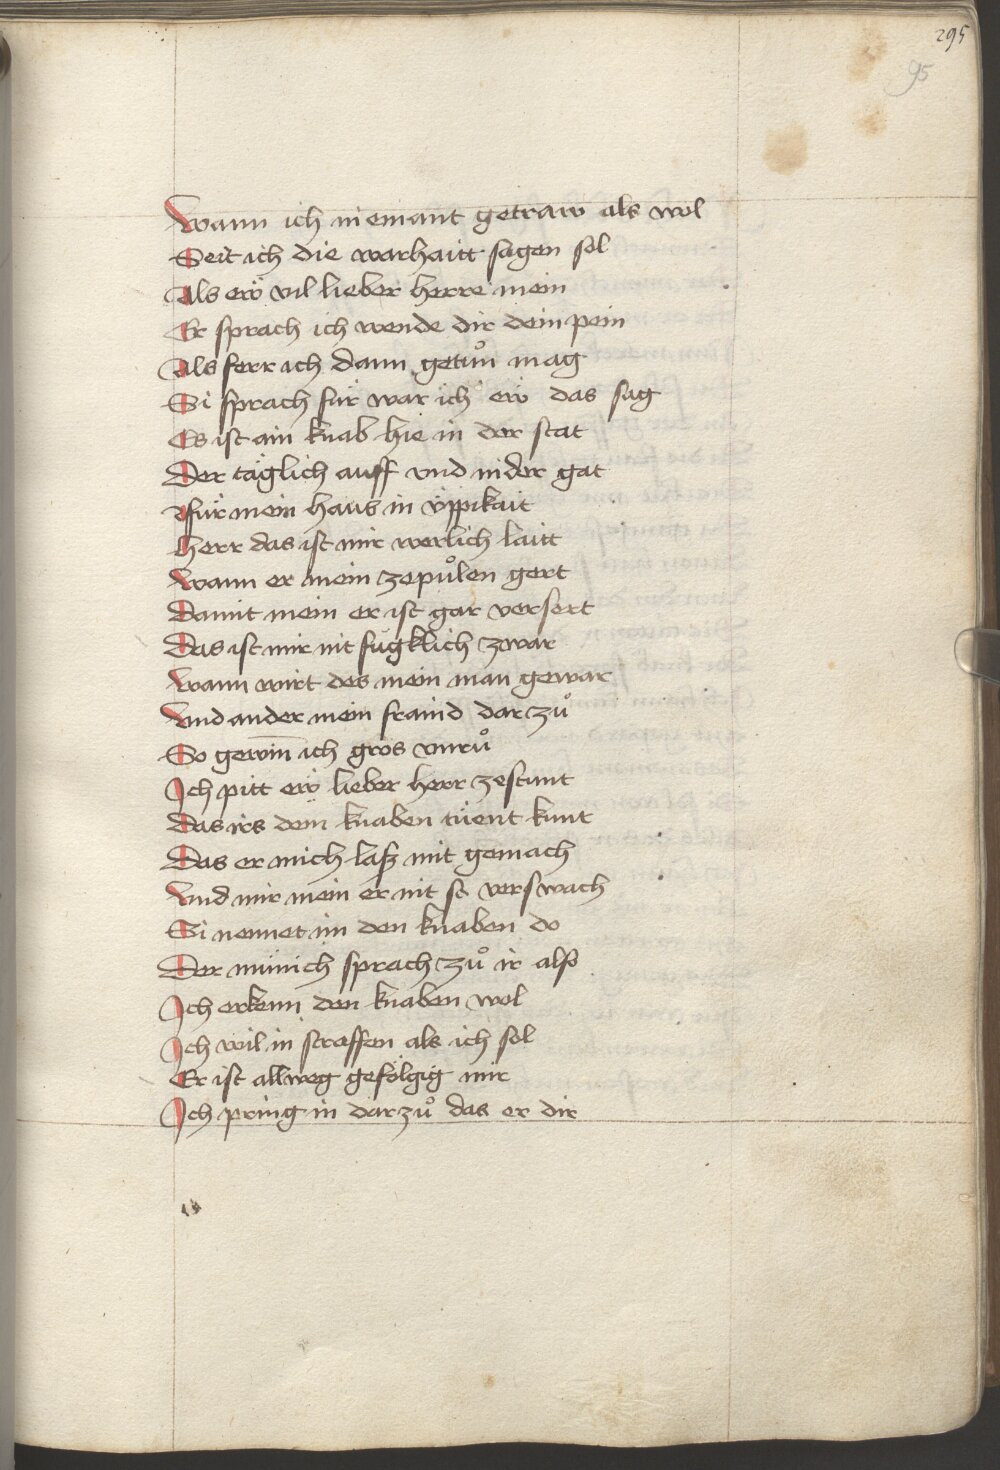 295
95
Wann ich niemant getraw als wol
Seit ich die warhaitt sagen sol
Als ew̎ vil lieber herre mein
Er sprach ich wende dir dein pein
Als ferr ich dann getůn mag
Si sprach für war ich ew̎ das sag
Es ist ain knab hie in der stat
Der täglich auff vnd nider gat
Ffür mein haus in v̈ppikait
Herr das ist mir werlich laitt
Wann er mein zepůlen gert
Damit mein er ist gar versert
Das ist mir nit fügklich zwar
Wann wirt des mein man gewar
Vnd ander mein fraind dar zů
So gewin̄ ich gros vnrů
Ich pitt ew̎ lieber herr zestunt
Das irs dem knaben tüent kunt
Das er mich laß mit gemach
Vnd mir mein er nit so verswach
Si nennet im den knaben do
Der münich sprach zů ir also
Ich erkenn den knaben wol
Ich wil in straffen als ich sol
Er ist allweg gefölgig mir
Ich pring in darzů das er dir